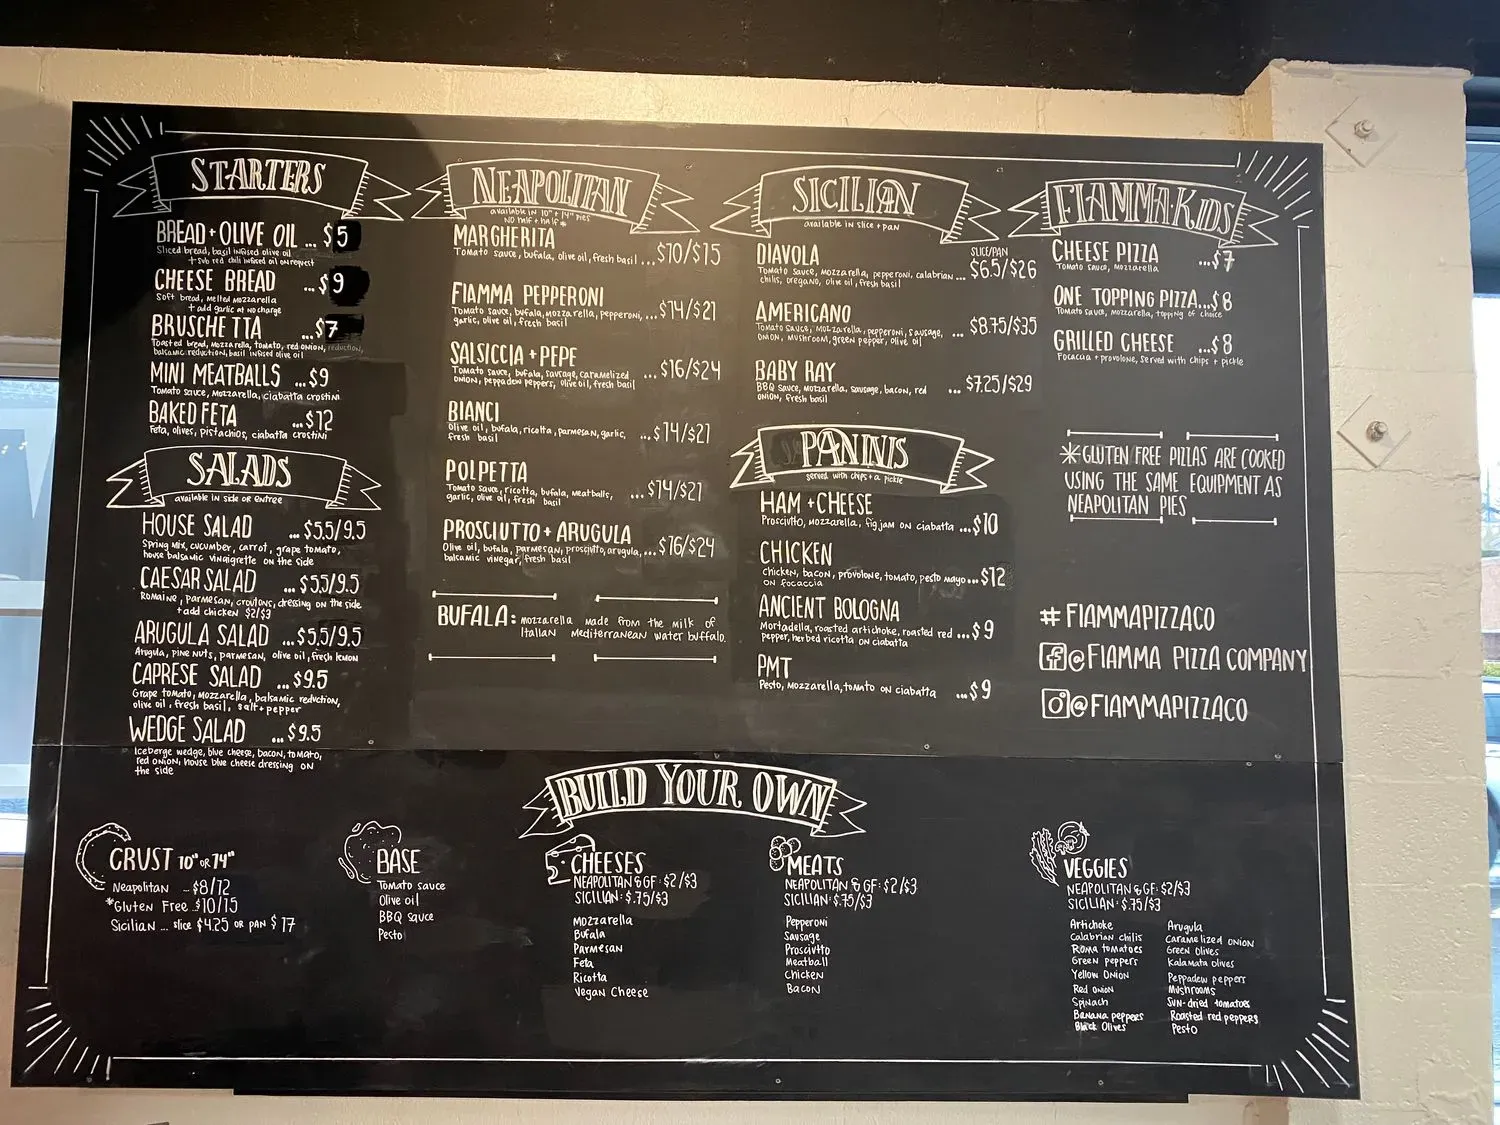 STARTERS
BREAD + OLIVE OIL ... $5
Sliced bread, basil infused olive oil
+ sub red chili infused oil on request
CHEESE BREAD ...$9
Soft bread, melted mozzarella
+ add garlic at no charge
BRUSCHETTA ...$7
Toasted bread, mozzarella, tomato, red onion, reduction,
balsamic reduction, basil infused olive oil
MINI MEATBALLS ...$9
Tomato sauce, mozzarella, ciabatta crostini
BAKED FETA ...$12
Feta, olives, pistachios, ciabatta crostini
SALADS
available in side or entree
HOUSE SALAD ... $5.5/9.5
Spring mix, cucumber, carrot, grape tomato,
house balsamic vinaigrette on the side
CAESAR SALAD ... $5.5/9.5
Romaine, parmesan, croutons, dressing on the side
+ add chicken $2/$3
ARUGULA SALAD ...$5.5/9.5
Arugula, pine nuts, parmesan, olive oil, fresh lemon
CAPRESE SALAD ...$9.5
Grape tomato, mozzarella, balsamic reduction,
olive oil, fresh basil, salt + pepper
WEDGE SALAD ...$9.5
Iceberge wedge, blue cheese, bacon, tomato,
red onion, house blue cheese dressing on
the side
NEAPOLITAN
available in 10" + 14" pies
NO half + half*
MARGHERITA
Tomato sauce, bufala, olive oil, fresh basil ... $10/$15
FIAMMA PEPPERONI
Tomato sauce, bufala, mozzarella, pepperoni, ... $14/$21
garlic, olive oil, fresh basil
SALSICCIA + PEPE
Tomato sauce, bufala, sausage, caramelized ... $16/$24
onion, peppadew peppers, olive oil, fresh basil
BIANCI
Olive oil, bufala, ricotta, parmesan, garlic, ... $14/$21
fresh basil
POLPETTA
Tomato sauce, ricotta, bufala, meatballs, ... $14/$21
garlic, olive oil, fresh basil
PROSCIUTTO + ARUGULA
Olive oil, bufala, parmesan, prosciutto, arugula, ... $16/$24
balsamic vinegar, fresh basil
BUFALA: mozzarella made from the milk of
Italian Mediterranean water buffalo.
SICILIAN
available in slice + pan
DIAVOLA SLICE/PAN
Tomato sauce, mozzarella, pepperoni, calabrian ... $6.5/$26
chilis, oregano, olive oil, fresh basil
AMERICANO
Tomato sauce, mozzarella, pepperoni, sausage, ... $8.75/$35
onion, mushroom, green pepper, olive oil
BABY RAY
BBQ sauce, mozzarella, sausage, bacon, red ... $7.25/$29
onion, fresh basil
PANINIS
served with chips + a pickle
HAM + CHEESE
Prosciutto, mozzarella, fig jam on ciabatta ...$10
CHICKEN
chicken, bacon, provolone, tomato, pesto mayo ...$12
on focaccia
ANCIENT BOLOGNA
Mortadella, roasted artichoke, roasted red ...$9
pepper, herbed ricotta on ciabatta
PMT
Pesto, mozzarella, tomato on ciabatta ...$9
FIAMMA·KIDS
CHEESE PIZZA ...$7
Tomato sauce, mozzarella
ONE TOPPING PIZZA...$8
Tomato sauce, mozzarella, topping of choice
GRILLED CHEESE ...$8
Focaccia + provolone, served with chips + pickle
*GLUTEN FREE PIZZAS ARE COOKED
USING THE SAME EQUIPMENT AS
NEAPOLITAN PIES
# FIAMMAPIZZACO
f @FIAMMA PIZZA COMPANY
@FIAMMAPIZZACO
BUILD YOUR OWN
CRUST 10" OR 14"
Neapolitan ... $8/12
*Gluten Free ..$10/15
Sicilian ... slice $4.25 OR PAN $17
BASE
Tomato sauce
Olive oil
BBQ sauce
Pesto
CHEESES
NEAPOLITAN & GF: $2/$3
SICILIAN: $.75/$3
Mozzarella
Bufala
Parmesan
Feta
Ricotta
Vegan Cheese
MEATS
NEAPOLITAN & GF: $2/$3
SICILIAN: $.75/$3
Pepperoni
Sausage
Prosciutto
Meatball
Chicken
Bacon
VEGGIES
NEAPOLITAN & GF: $2/$3
SICILIAN: $.75/$3
Artichoke
Calabrian chilis
Roma tomatoes
Green peppers
Yellow Onion
Red onion
Spinach
Banana peppers
Black Olives
Arugula
Caramelized onion
Green Olives
Kalamata olives
Peppadew peppers
Mushrooms
Sun-dried tomatoes
Roasted red peppers
Pesto